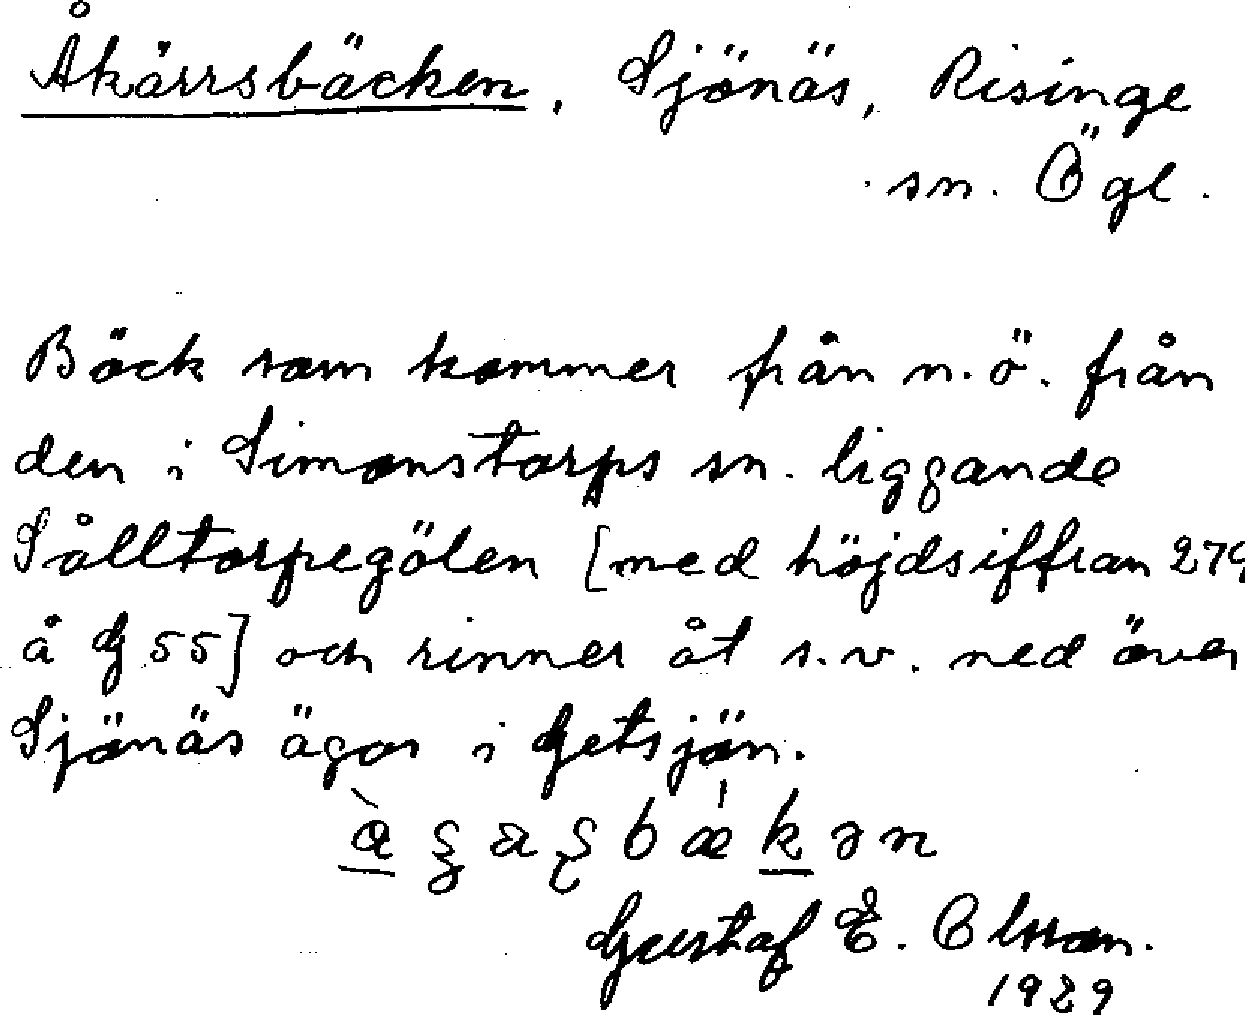 Åkärrsbäcken, Sjönäs, Risinge
sn. Ögl.
Bäck som kommer från n.ö. från
den i Simonstorps sn. liggande
Sålltorpegölen [med höjdsiffran 279
å G 55] och rinner åt s.v. ned över
Sjönäs ägor i Getsjön.
Gustaf E. Olsson.
1929